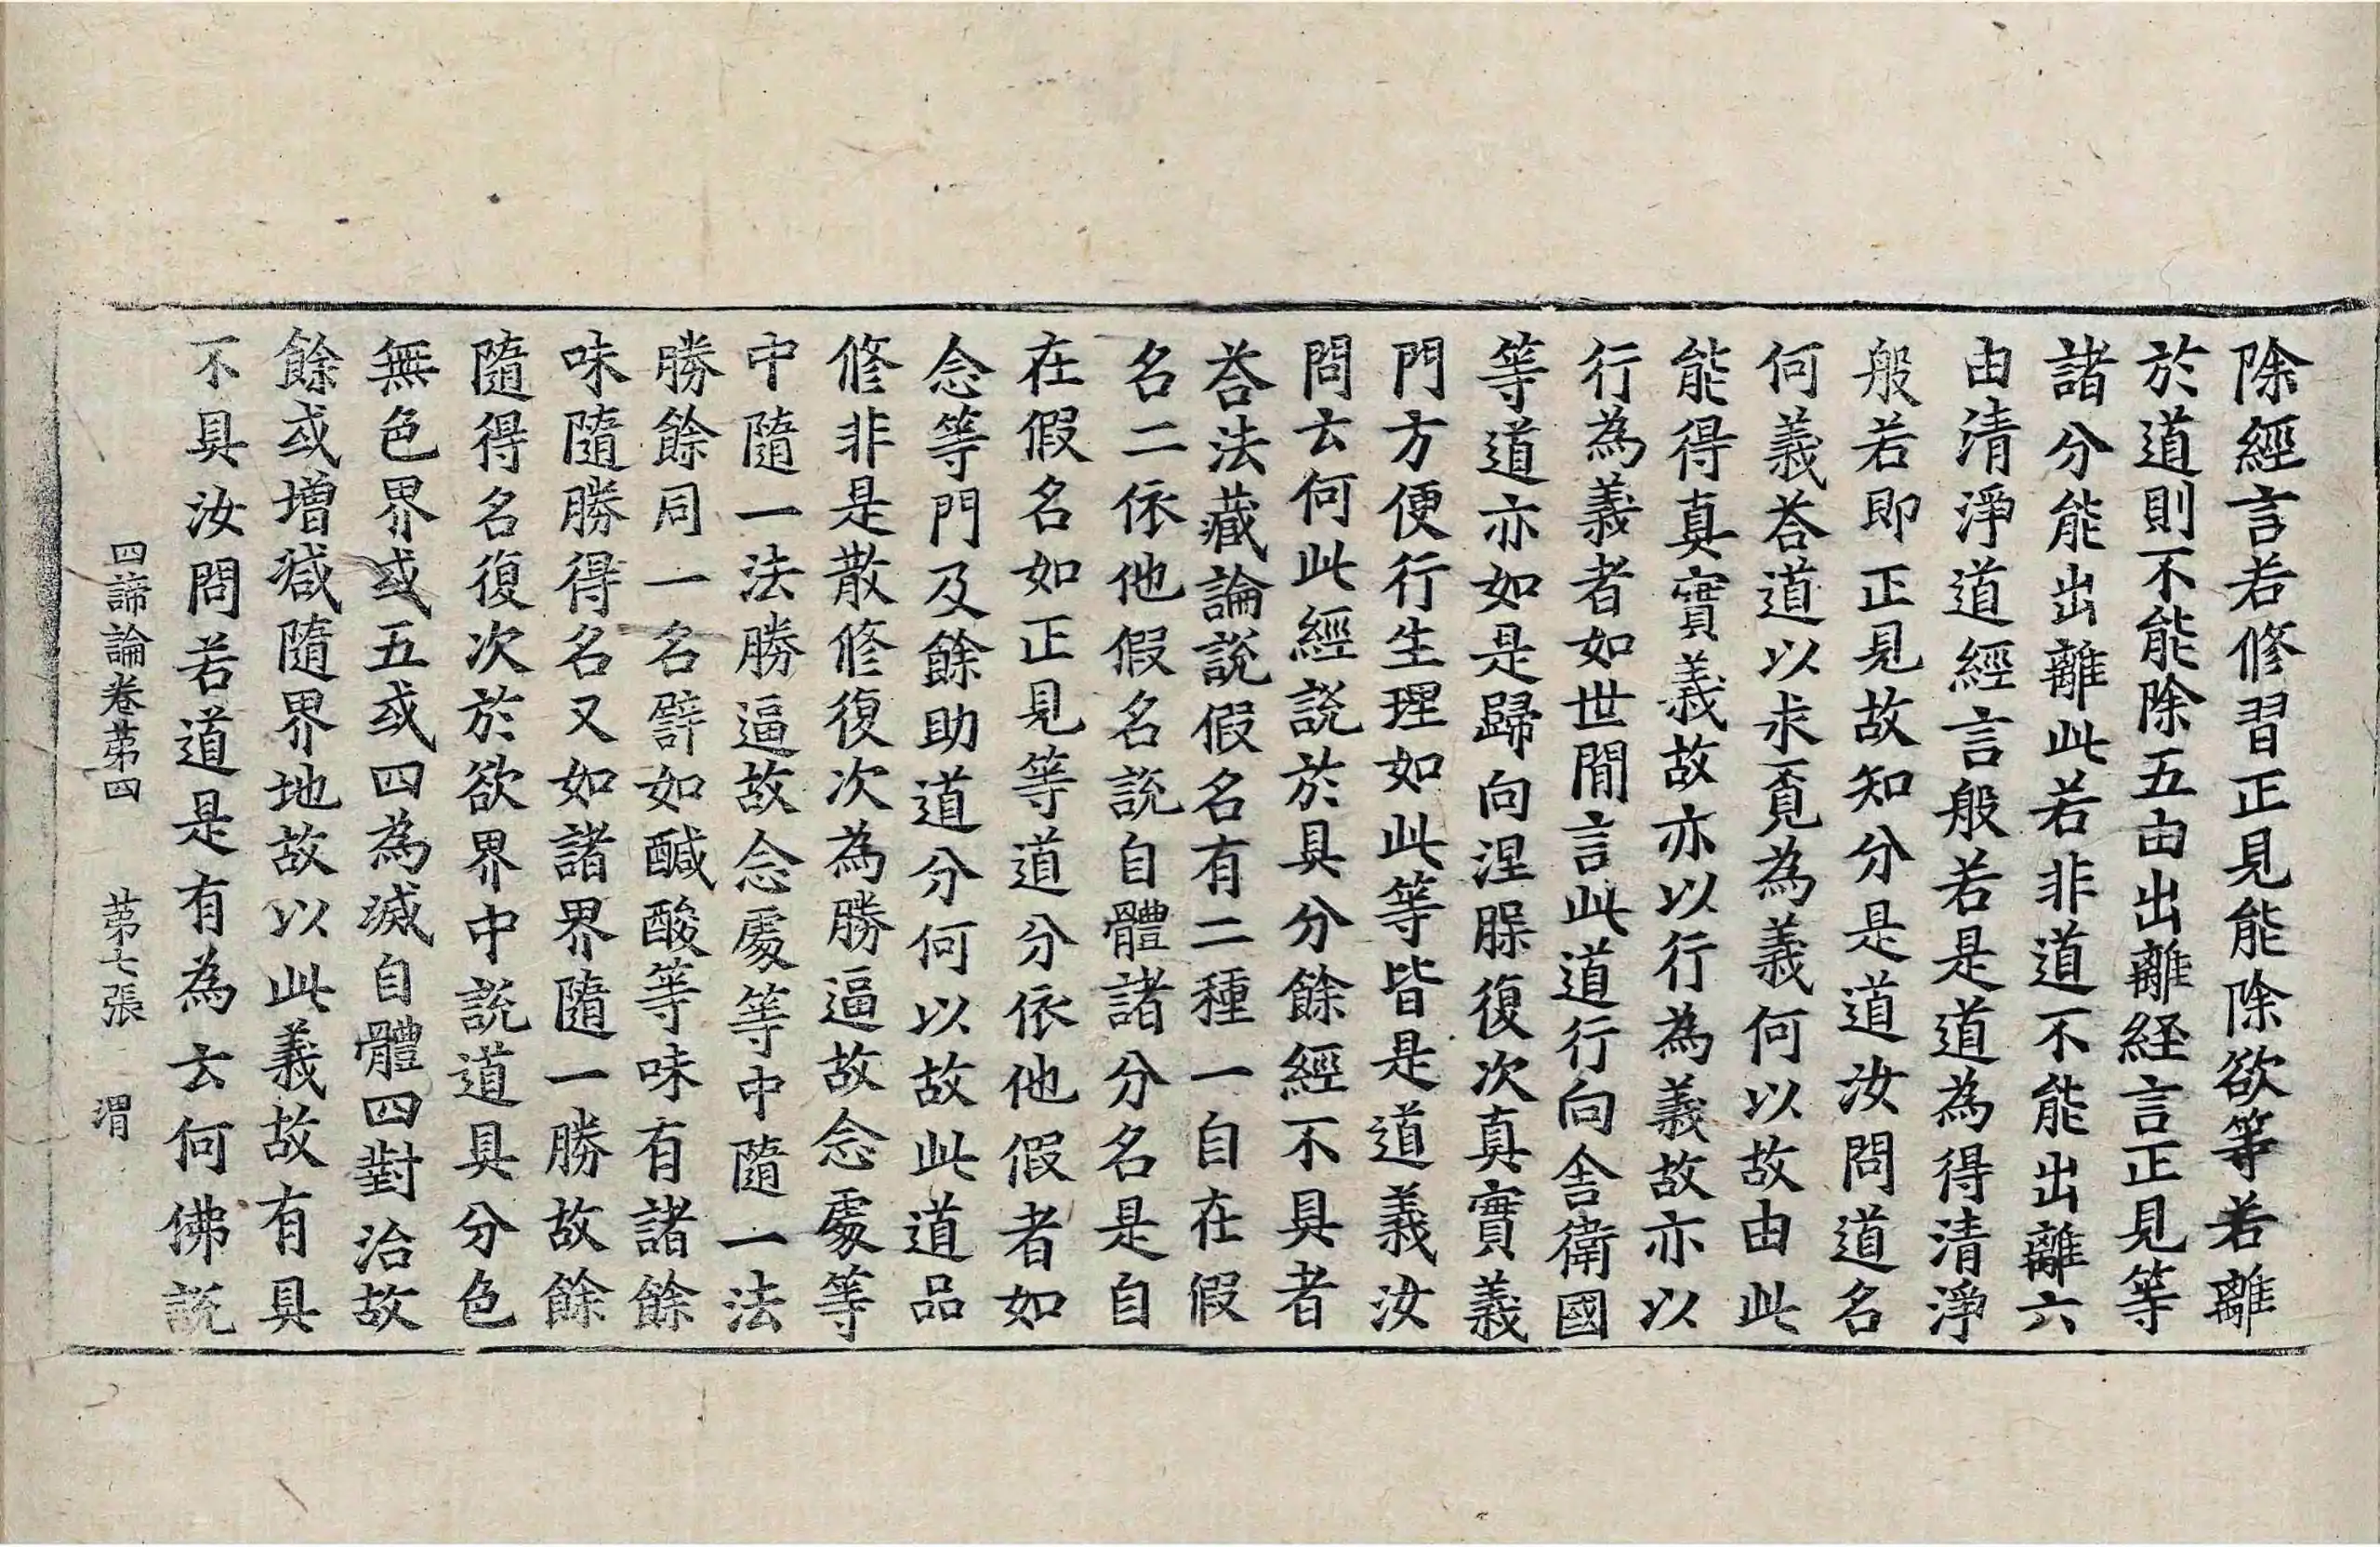 除經言若修習正見能除欲等若離
於道則不能除五由出離経言正見等
諸分能出離此若非道不能出離六
由清淨道經言般若是道為得清淨
般若即正見故知分是道汝問道名
何義荅道以求覔為義何以故由此
能得真實義故亦以行為義故亦以
行為義者如世閒言此道行向舍衛國
等道亦如是歸向涅槃復次真實義
門方便行生理如此等皆是道義汝
問云何此經說於具分餘經不具者
荅法藏論說假名有二種一自在假
名二依他假名說自體諸分名是自
在假名如正見等道分依他假者如
念等門及餘助道分何以故此道品
修非是散修復次為勝逼故念處等
中隨一法勝逼故念處等中隨一法
勝餘同一名譬如鹹酸等味有諸餘
味隨勝得名又如諸界隨一勝故餘
隨得名復次於欲界中說道具分色
無色界或五或四為滅自體四對治故
餘或增減隨界地故以此義故有具
不具汝問若道是有為云何佛說
四諦論卷苐四　苐七張　渭